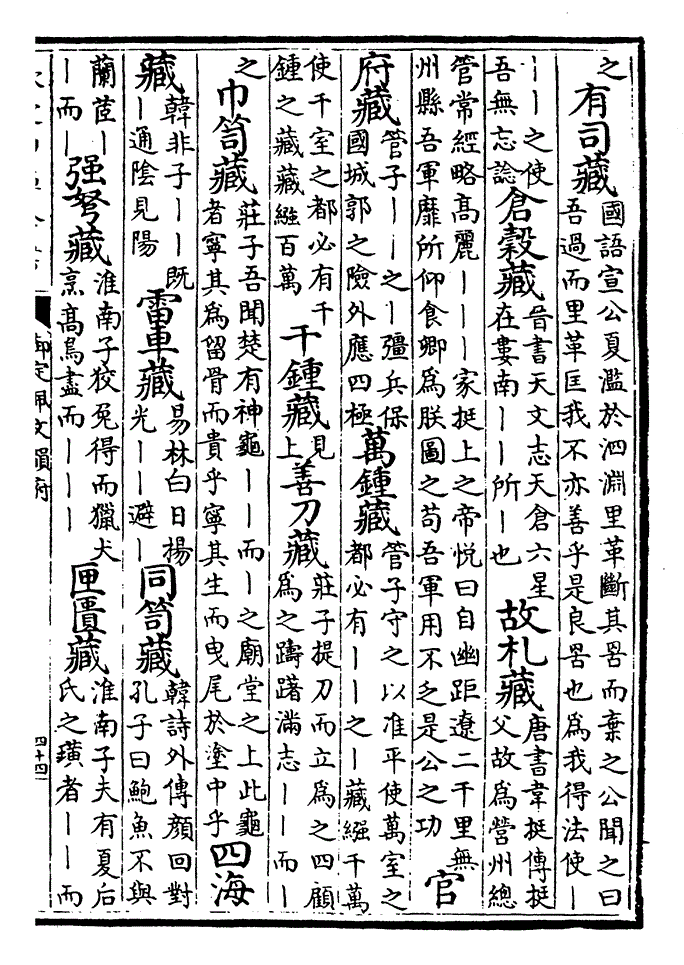 之有司藏國語宣公夏濫於泗淵里革斷其罟而棄之公聞之曰
吾過而里革匡我不亦善乎是良罟也爲我得法使丨
丨丨之使
吾無忘諗
倉穀藏晉書天文志天倉六星
在婁南丨丨所丨也
故札藏唐書韋挺傳挺
父故爲營州總
管常經略高麗丨丨丨家挺上之帝悅曰自幽距遼二千里無
州縣吾軍靡所仰食卿爲朕圖之苟吾軍用不乏是公之功
官
府藏管子丨丨之丨彊兵保
國城郭之險外應四極
萬鍾藏管子守之以准平使萬室之
都必有丨丨之丨藏繦千萬
使千室之都必有千
鍾之藏藏繦百萬
千鍾藏見
上
善刀藏莊子提刀而立爲之四顧
爲之躊躇滿志丨丨而丨
之巾笥藏莊子吾聞楚有神龜丨丨而丨之廟堂之上此龜
者寧其爲留骨而貴乎寧其生而曳尾於塗中乎
四海
藏韓非子丨丨既
丨通陰見陽
雷車藏易林白日揚
光丨丨避丨
同笥藏韓詩外傳顏回對
孔子曰鮑魚不與
蘭茝丨
丨而丨
强弩藏淮南子狡兔得而獵犬
烹高鳥盡而丨丨丨
匣匵藏淮南子夫有夏后
氏之璜者丨丨而
御定佩文韻府
四十四